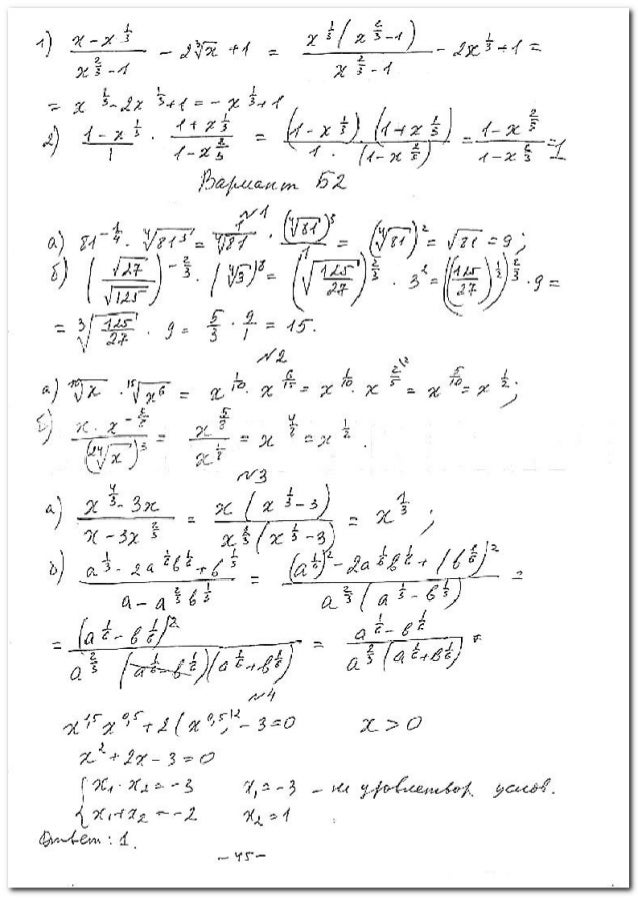 1) (x - x^(1/3))/(x^(2/3) - 1) - 2∛x + 1 = (x^(1/3)(x^(2/3) - 1))/(x^(2/3) - 1) - 2x^(1/3) + 1 =
= x^(1/3) - 2x^(1/3) + 1 = -x^(1/3) + 1
2) (1 - x^(1/3))/1 · (1 + x^(1/3))/(1 - x^(2/3)) = ((1 - x^(1/3)) · (1 + x^(1/3)))/(1 · (1 - x^(2/3))) = (1 - x^(2/3))/(1 - x^(2/3)) = 1
Вариант Б2
№1
а) 81^(-1/4) · ∜81³ = 1/∜81 · (∜81)³/1 = (∜81)² = √81 = 9;
б) (√27/√125)^(-2/3) · (∜3)⁸ = (√(125/27))^(2/3) · 3² = ((125/27)^(1/2))^(2/3) · 9 =
= ∛(125/27) · 9 = 5/3 · 9/1 = 15.
№2
а) ¹⁰√x · ¹⁵√x⁶ = x^(1/10) · x^(6/15) = x^(1/10) · x^(2/5) = x^(5/10) = x^(1/2);
= x^(1/2).
№3
а) (x^(4/3) - 3x)/(x - 3x^(2/3)) = (x(x^(1/3) - 3))/(x^(2/3)(x^(1/3) - 3)) = x^(1/3);
б) (a^(1/3) - 2a^(1/6)b^(1/6) + b^(1/3))/(a - a^(2/3)b^(1/3)) = ((a^(1/6))² - 2a^(1/6)b^(1/6) + (b^(1/6))²)/(a^(2/3)(a^(1/3) - b^(1/3))) =
= (a^(1/6) - b^(1/6))²/(a^(2/3)(a^(1/6) - b^(1/6))(a^(1/6) + b^(1/6))) = (a^(1/6) - b^(1/6))/(a^(2/3)(a^(1/6) + b^(1/6)))
№4
x^(1,5)x^(0,5) + 2(x^(0,5))² - 3 = 0 x > 0
x² + 2x - 3 = 0
{ x₁ · x₂ = -3 x₁ = -3 - не удовлетвор. услов.
{ x₁ + x₂ = -2 x₂ = 1
Ответ: 1.
- 45 -